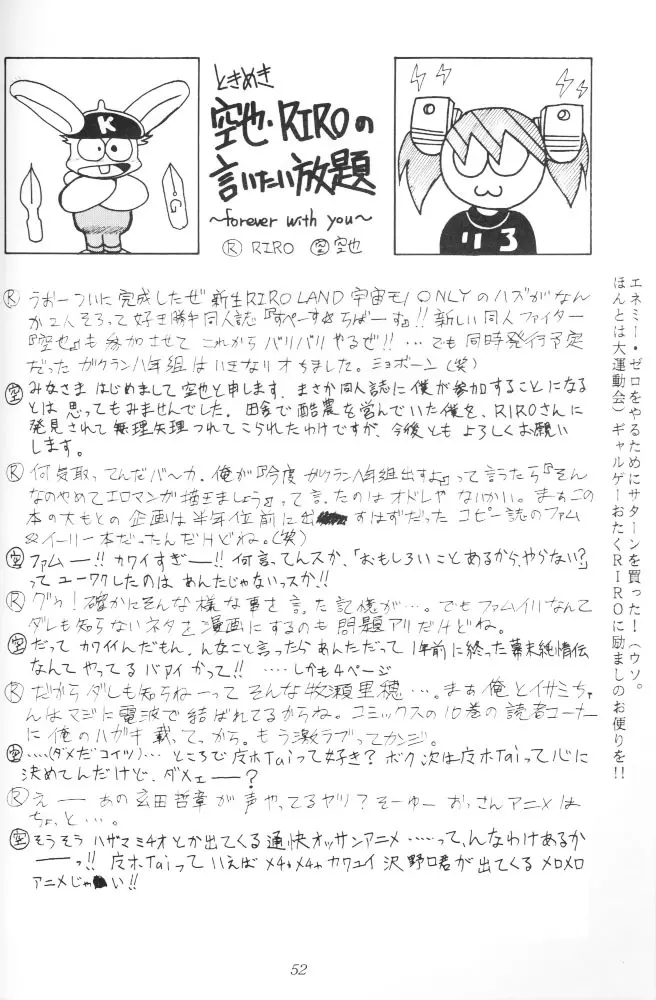 ときめき
空也・RIROの
言いたい放題
〜forever with you〜
Ⓡ RIRO 空 空也
K
G
リろ
エネミー・ゼロをやるためにサターンを買った！(ウソ。
ほんとは大運動会）ギャルゲーおたくRIROに励ましのお便りを!!
Ⓡ うおーついに完成したぜ 新生RIRO LAND 宇宙モノONLYのハズがなん
か2人そろって好き勝手同人誌『すぺーす☆ちばーす』!! 新しい同人ファイター
『空也』も参加させて これからバリバリやるぜ!! …でも同時発行予定
だった ガクラン八年組は いきなりオちました。ショボーン(笑)
空 みなさま はじめまして 空也と申します. まさか同人誌に僕が参加することになる
とは 思ってもみませんでした. 田舎で酪農を営んでいた僕を、RIROさんに
発見されて 無理矢理 つれてこられたわけですが、今後とも よろしくお願い
します。
Ⓡ 何気取ってんだバ〜カ. 俺が『今度ガクラン八年組出すよ』って言うたら『そん
なのやめてエロマンガ描きましょう』って言ったのは オドレや ないかい。まぁこの
本の大もとの 企画は半年位前に出 すはずだった コピー誌のファム
&イーリー本だったんだけどね。(笑)
空 ファムー!! カワイすぎー!! 何言ってんスか、「おもしろいことあるから、やらない?」
って ユーワクしたのは あんたじゃないっスか!!
Ⓡ グゥ! 確かにそんな様な事を言った記憶が…。でもファムイリなんて
ダレも知らないネタを漫画にするのも 問題アリだけどね。
空 だって カワイイんだもん. んなこと言ったら あんただって 1年前に終った幕末純情伝
なんて やってる バァイかって!! …… しかも4ページ
Ⓡ だからダレも知らねーって そんな牧瀬里穂…。まぁ俺とイサミちゃ
んはマジに電波で結ばれてるからね。コミックスの10巻の読者コーナー
に 俺のハガキ載ってっから。もう激ラブってカンジ。
空 ……(ダメだコイツ)… ところで 皮ホTaiって好き? ボク次は皮ホTaiって心に
決めてんだけど、ダメェ――?
Ⓡ え―― あの玄田哲章が声やってるヤツ? そーゆー おっさんアニメは
ちょっと…。
空 そうそう ハザマミチオとか出てくる 通快オッサンアニメ ……って、んなわけあるか
――っ!! 皮ホTaiって いえば メチャメチャ カワユイ 沢野口君が出てくる メロメロ
アニメじゃ い!!
52